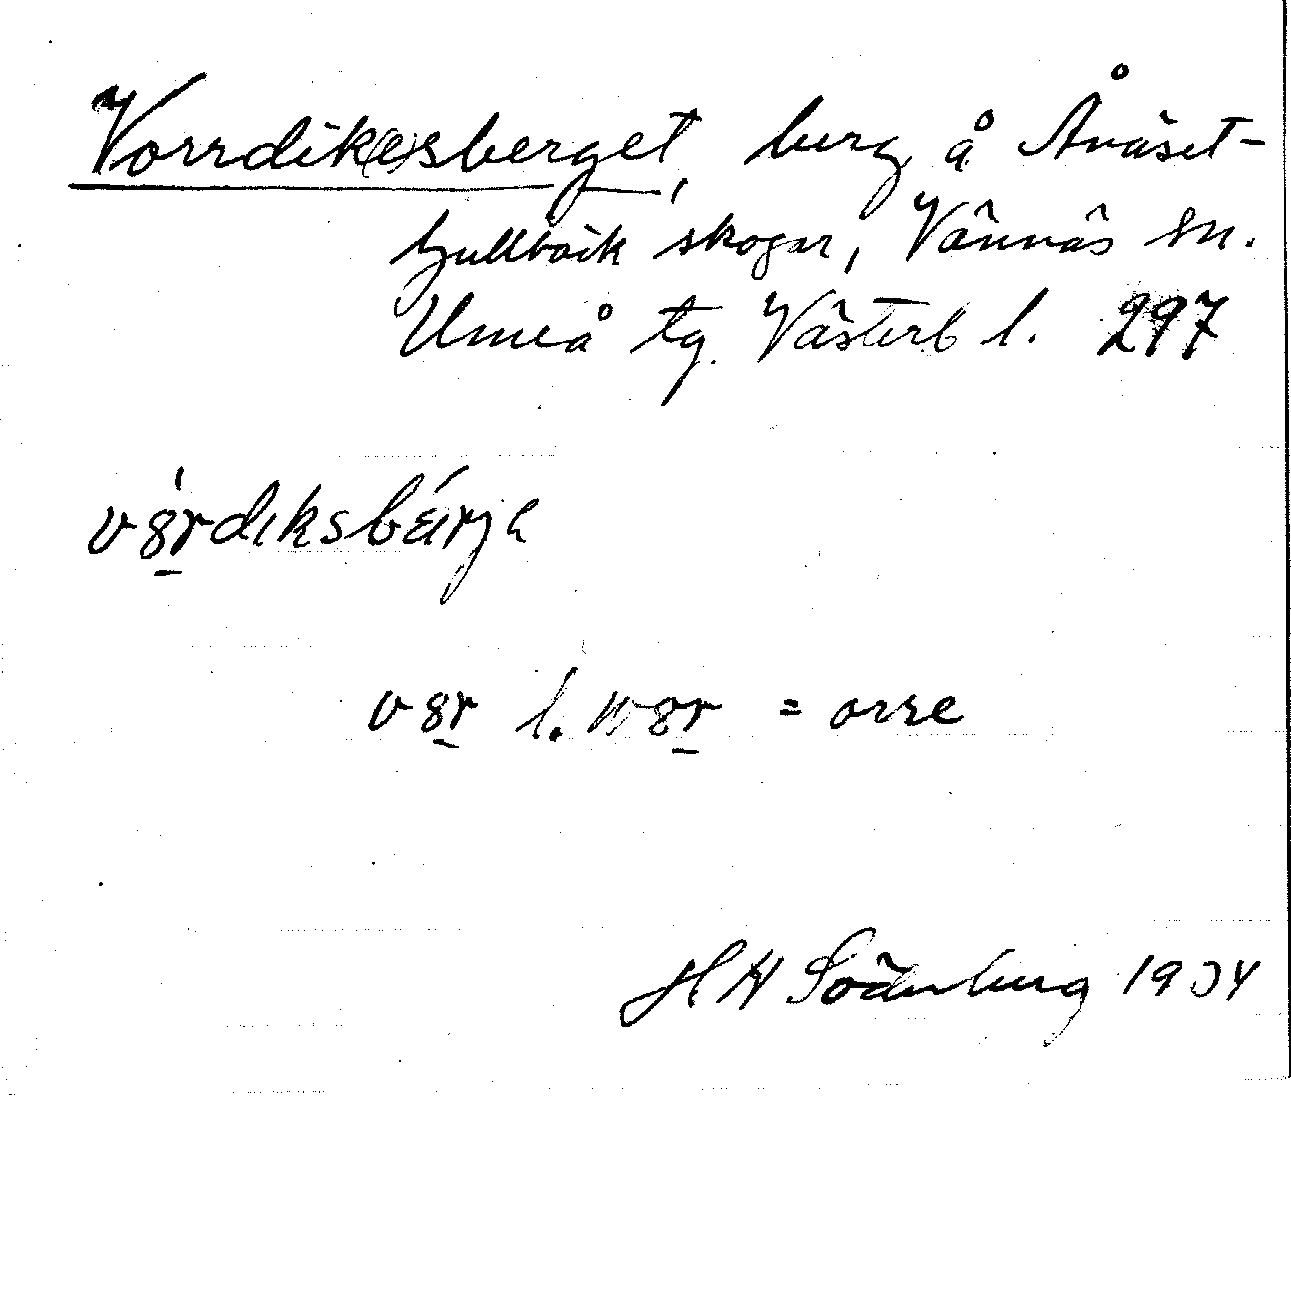 Vorrdik(e)sberget, berg å Åväset-
Gullbäck skogar, Vännäs sn.
Umeå tg. Västerb l. 297
v8rdıksbärjə
v8r l. w8r = orre
H H Söderberg 1934